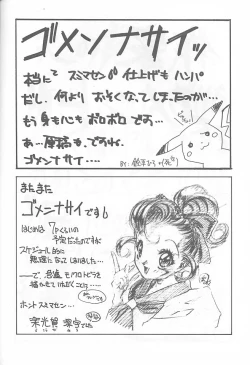 ゴメンナサイッ
本当にて スミマセン 仕上げもハンパ
だし、何より おそくなってしまったのが…
もう身も心も ボロボロ です…
あ…原稿も、ですね。
ゴメンナサイ….
BY.
またまた
ゴメンナサイです
はじめは 7Pくらいの
予定だったのですが
スケジュール的に
無理になってしまいました…
で、急遽、モノクロイラストを
描かせていただくことに…
ホントスミマセン…